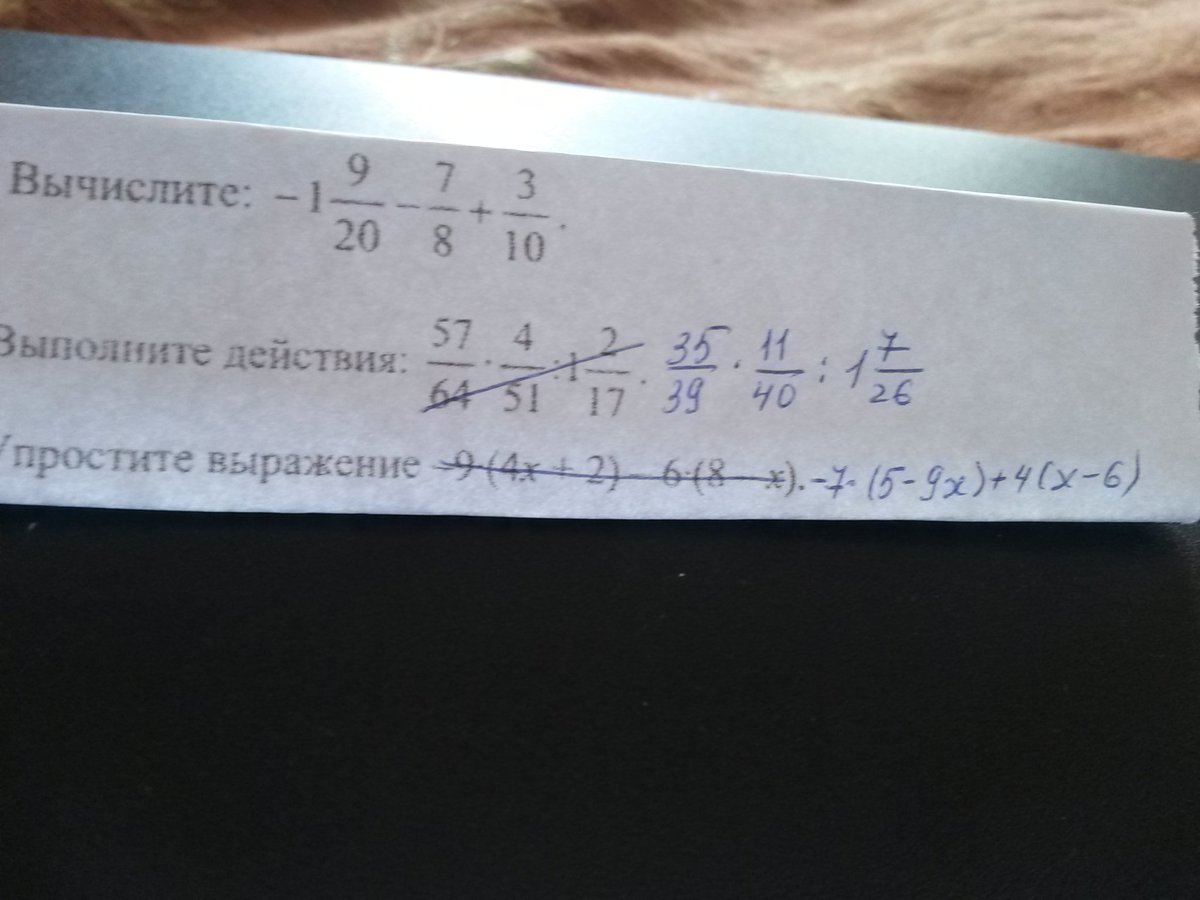 Вычислите: −1 9/20 − 7/8 + 3/10.
Выполните действия: 57/64 · 4/51 : 1 2/17. 35/39 · 11/40 : 1 7/26
Упростите выражение −9·(4x + 2) − 6·(8 − x). −7·(5−9x)+4(x−6)